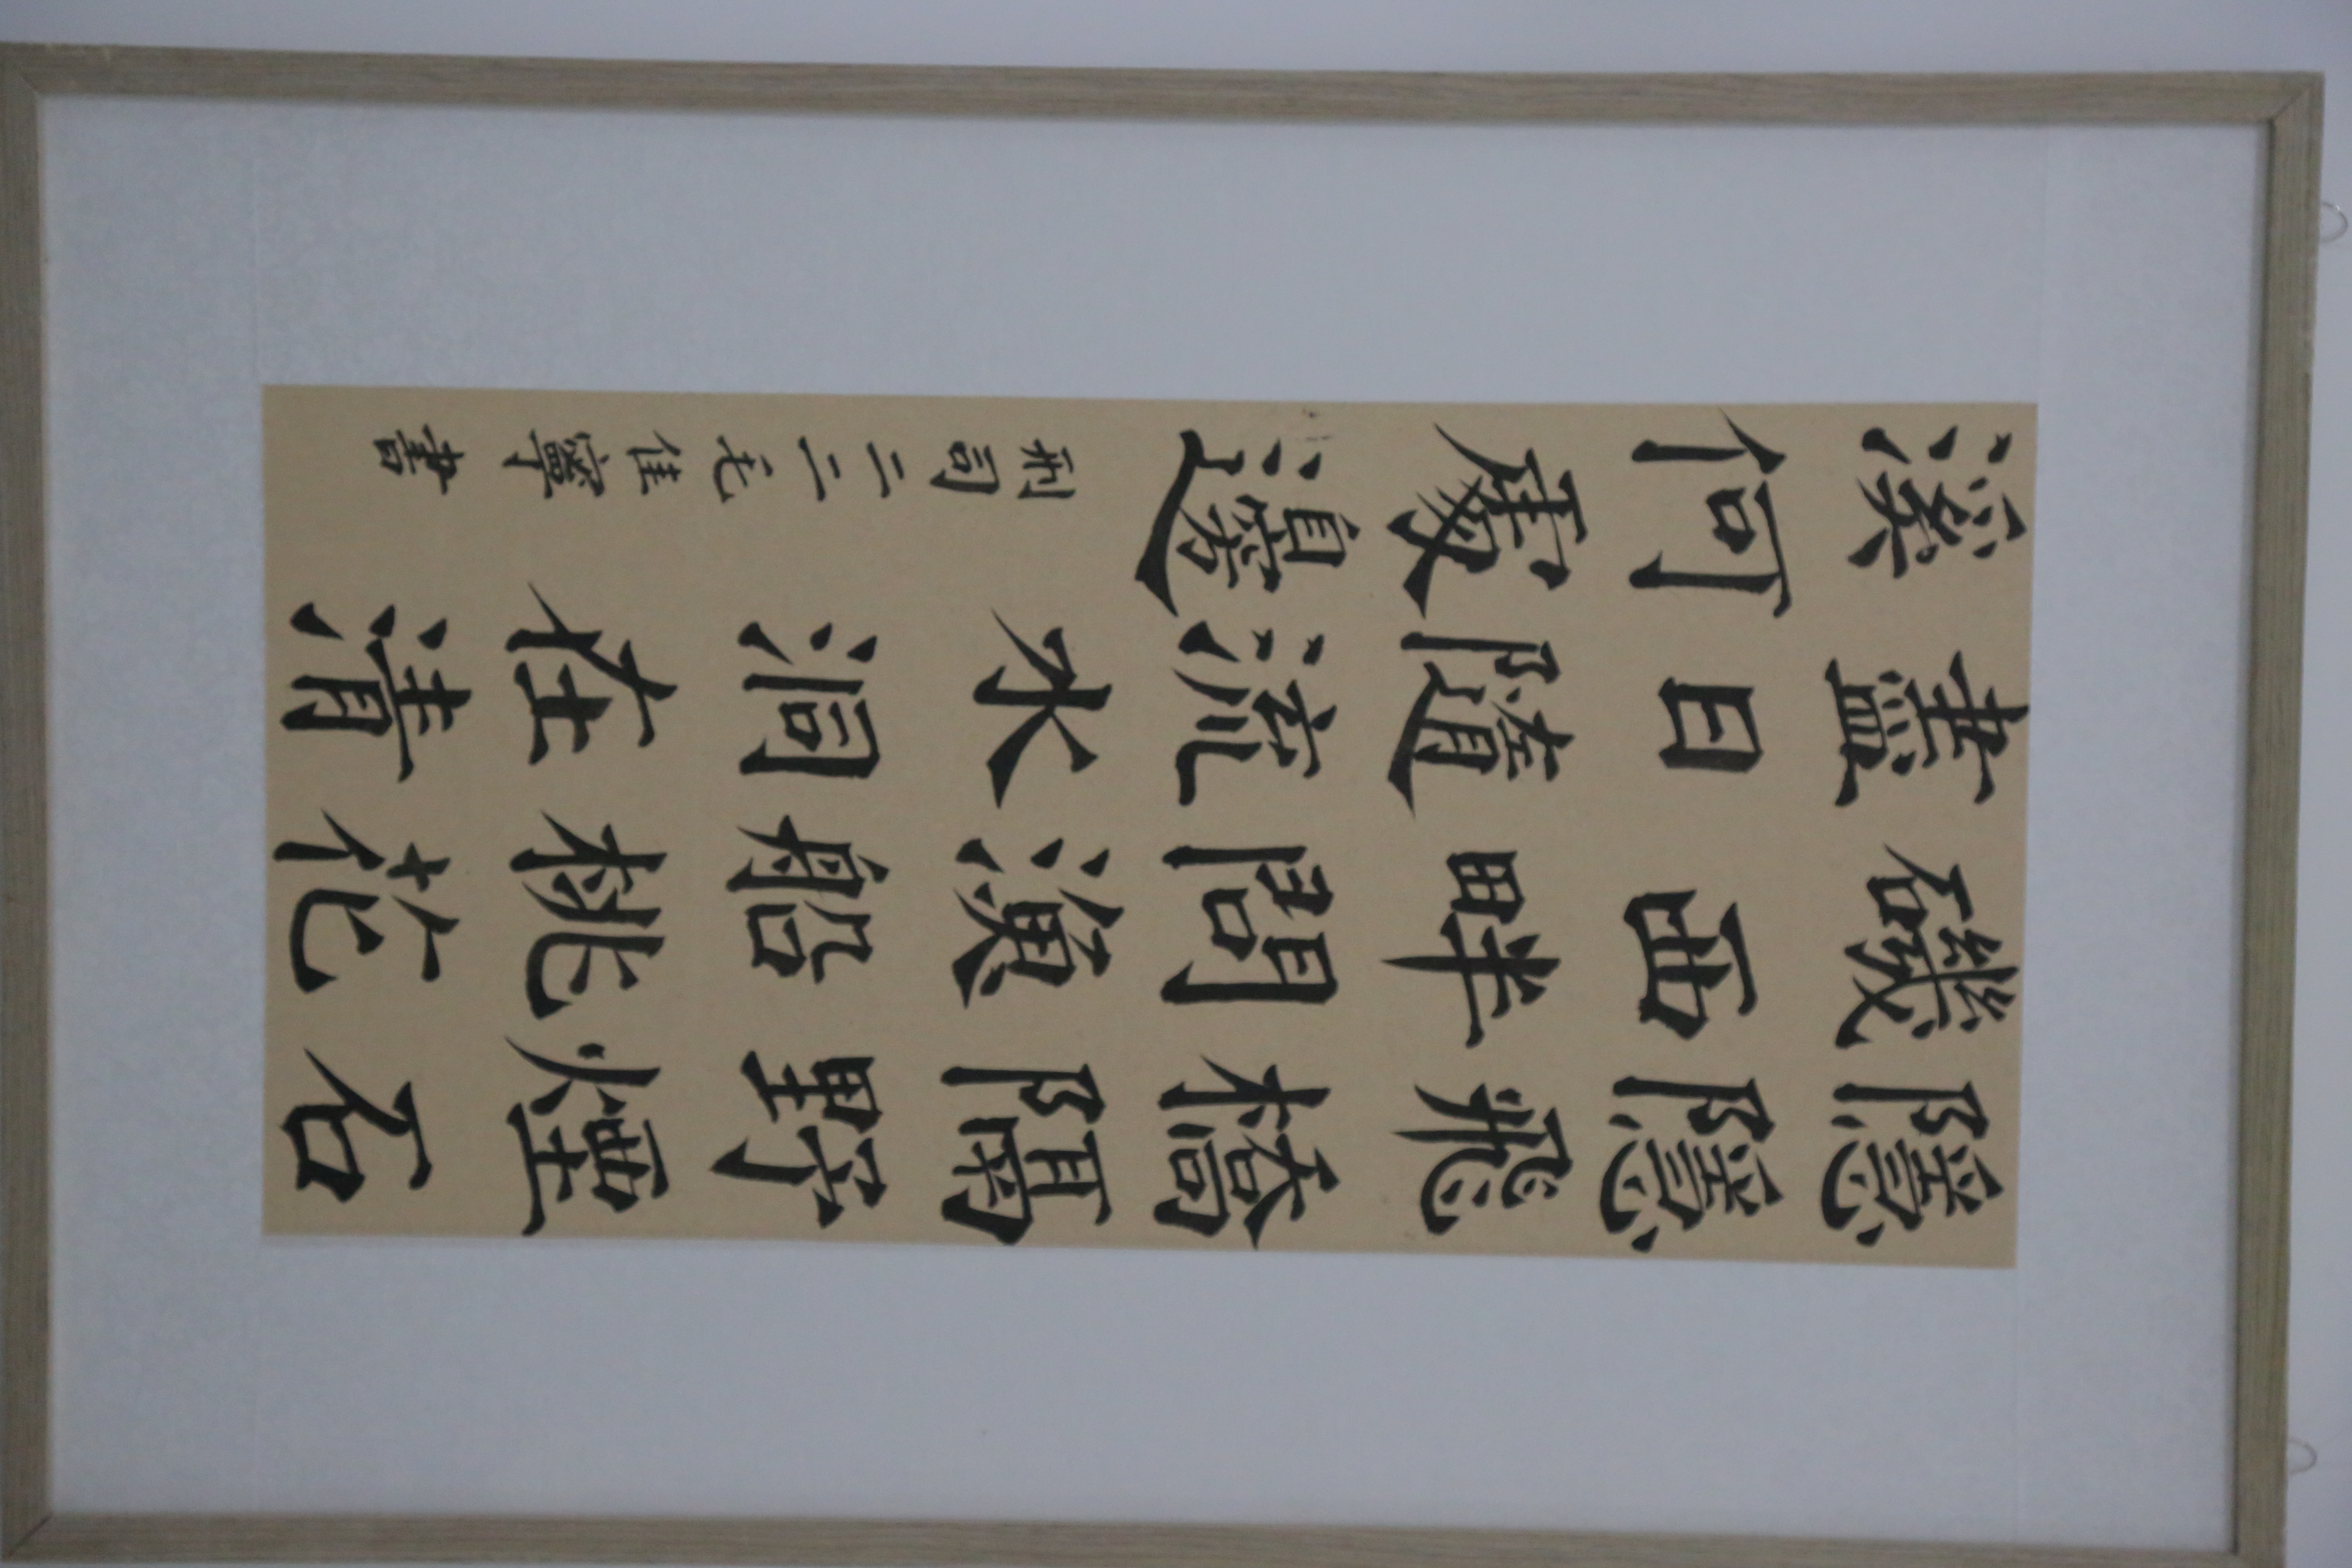 隱隱飛橋隔野煙石
磯西畔問漁船桃花
盡日隨流水洞在清
溪何處邊
司二二佳寧書